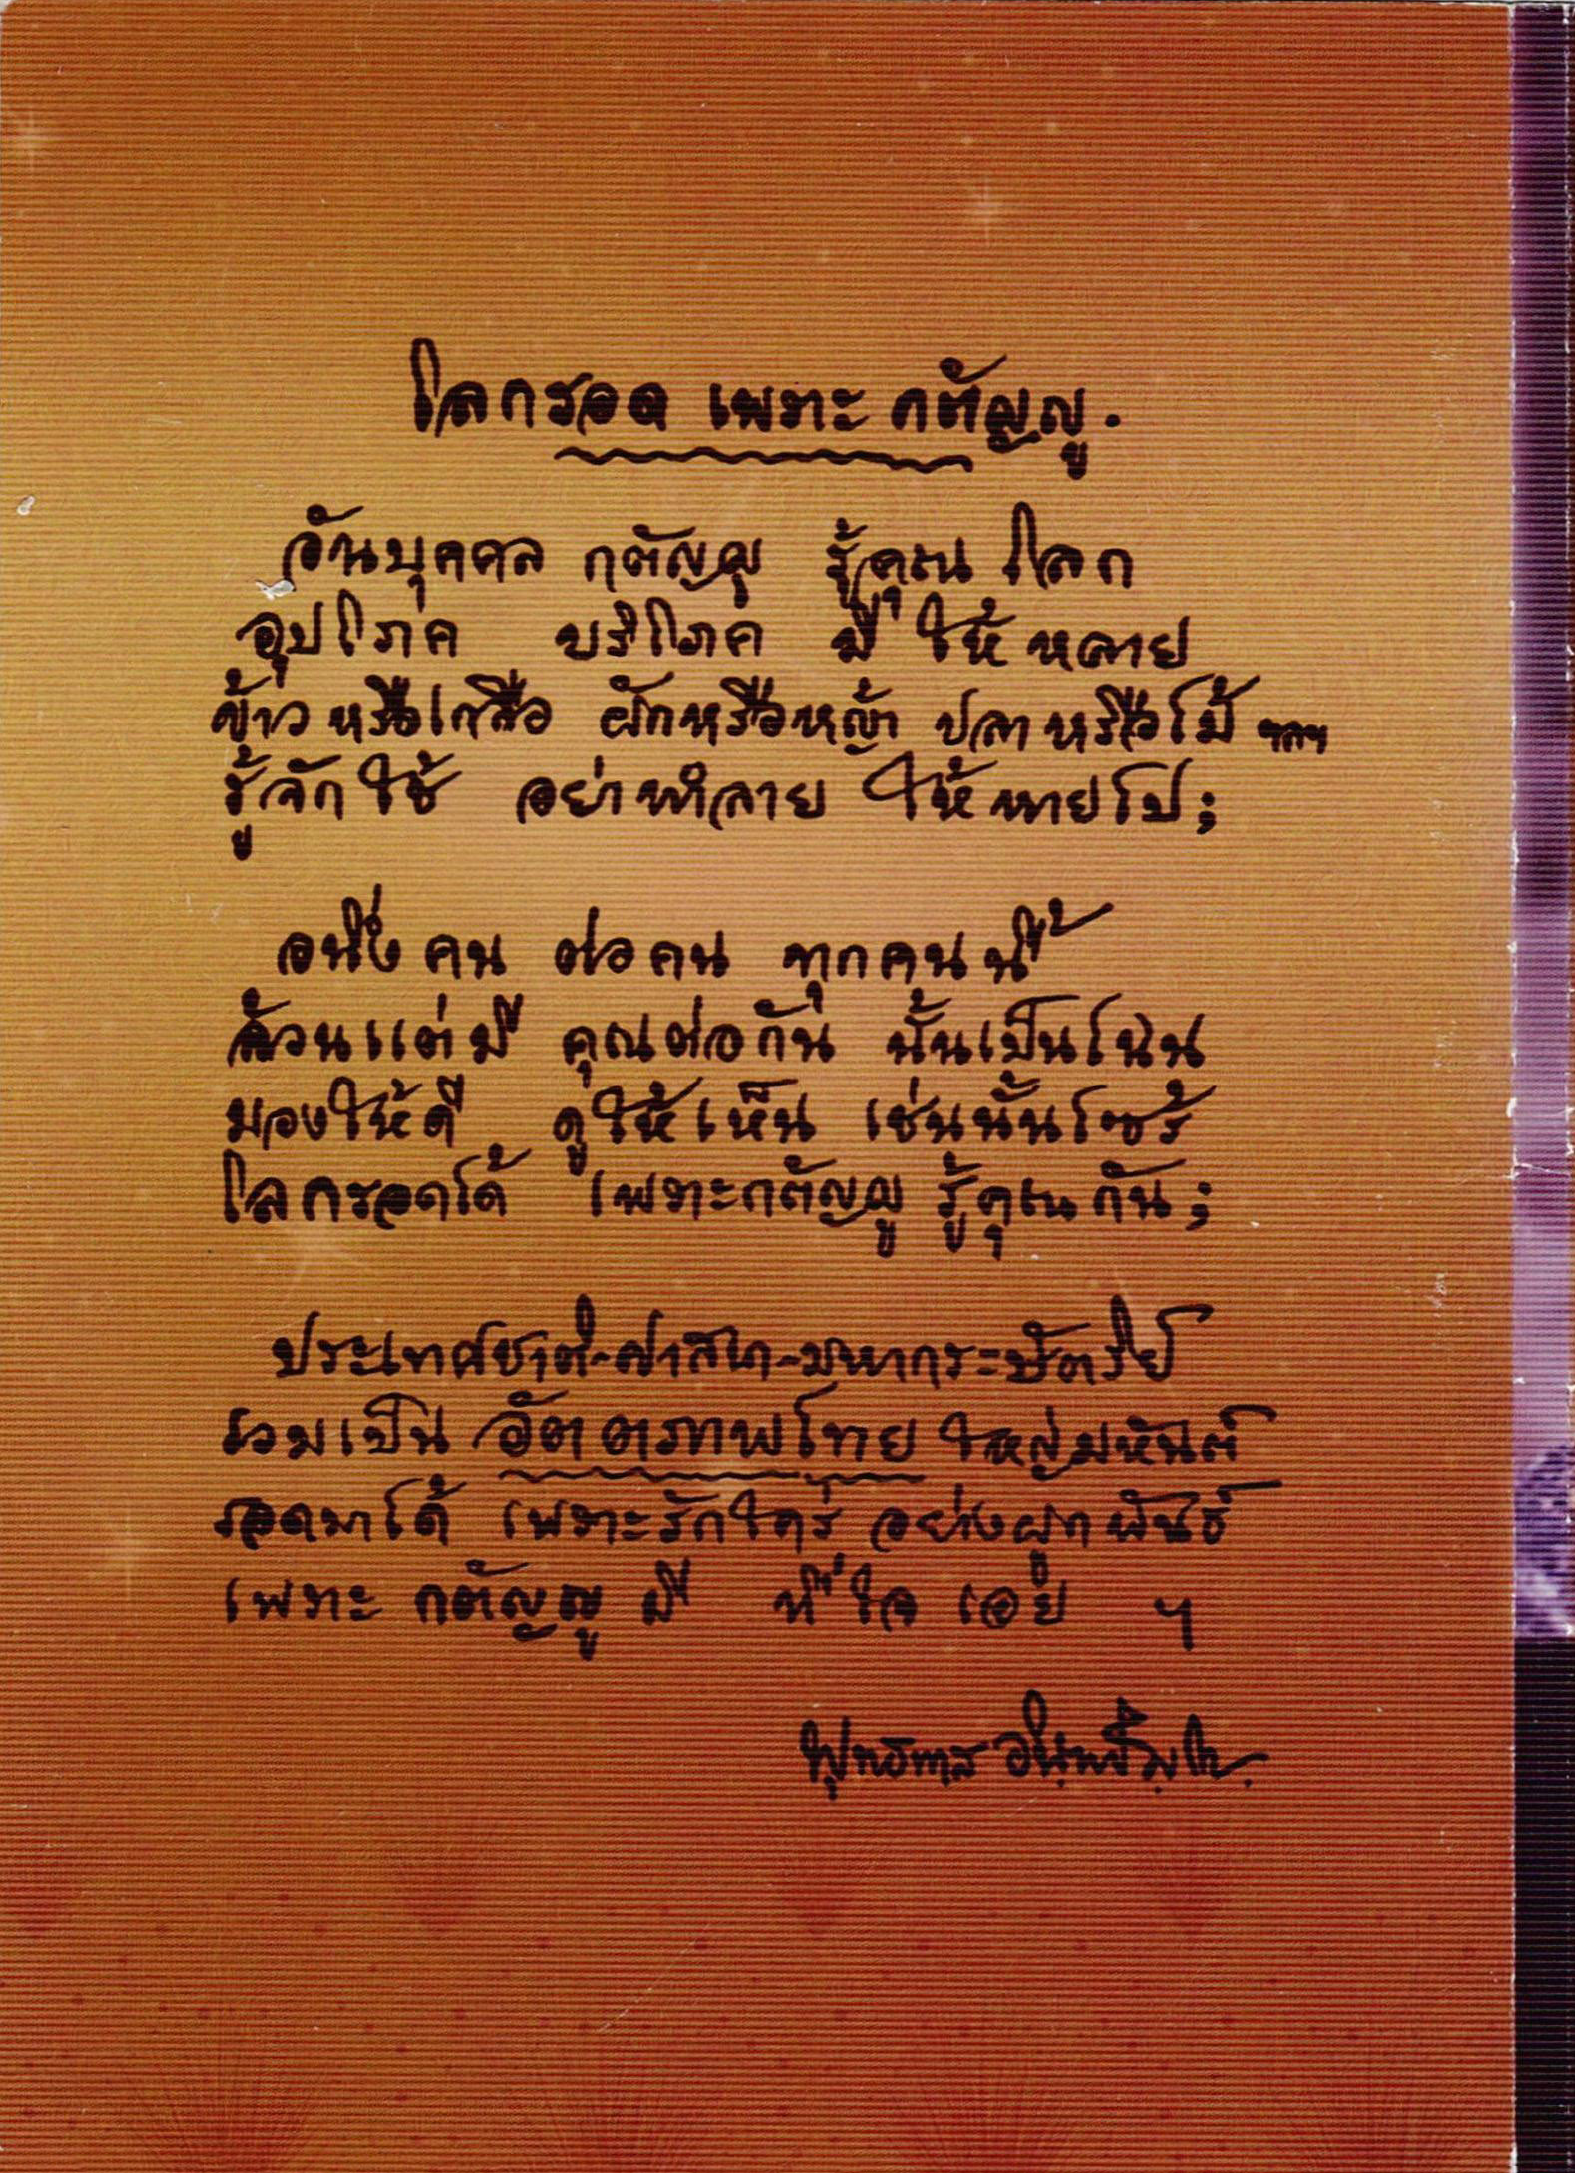 โลกรอด เพราะ กตัญญู.
อันบุคคล กตัญญู รู้คุณ โลก
อุปโภค บริโภค มี ให้ หลาย
ข้าว หรือเกลือ ผักหรือหญ้า ปลา หรือไม้ ฯลฯ
รู้จักใช้ อย่าทำลาย ให้หายไป;
อนึ่ง คน ต่อ คน ทุกคน นี้
ล้วนแต่มี คุณต่อกัน นั้นเป็นไฉน
มองให้ดี ดูให้เห็น เช่นนั้นไซร้
โลกรอดได้ เพราะกตัญญู รู้คุณ กัน;
ประเทศชาติ-ศาสนา-มหากระษัตริย์
รวมเป็น อัตตภาพไทย ใหญ่มหันต์
รอดมาได้ เพราะรักใคร่ อย่างผูกพันธ์
เพราะ กตัญญู มี ที่ใจ เอย ฯ
พุทธทาส อินทปัญโญ.